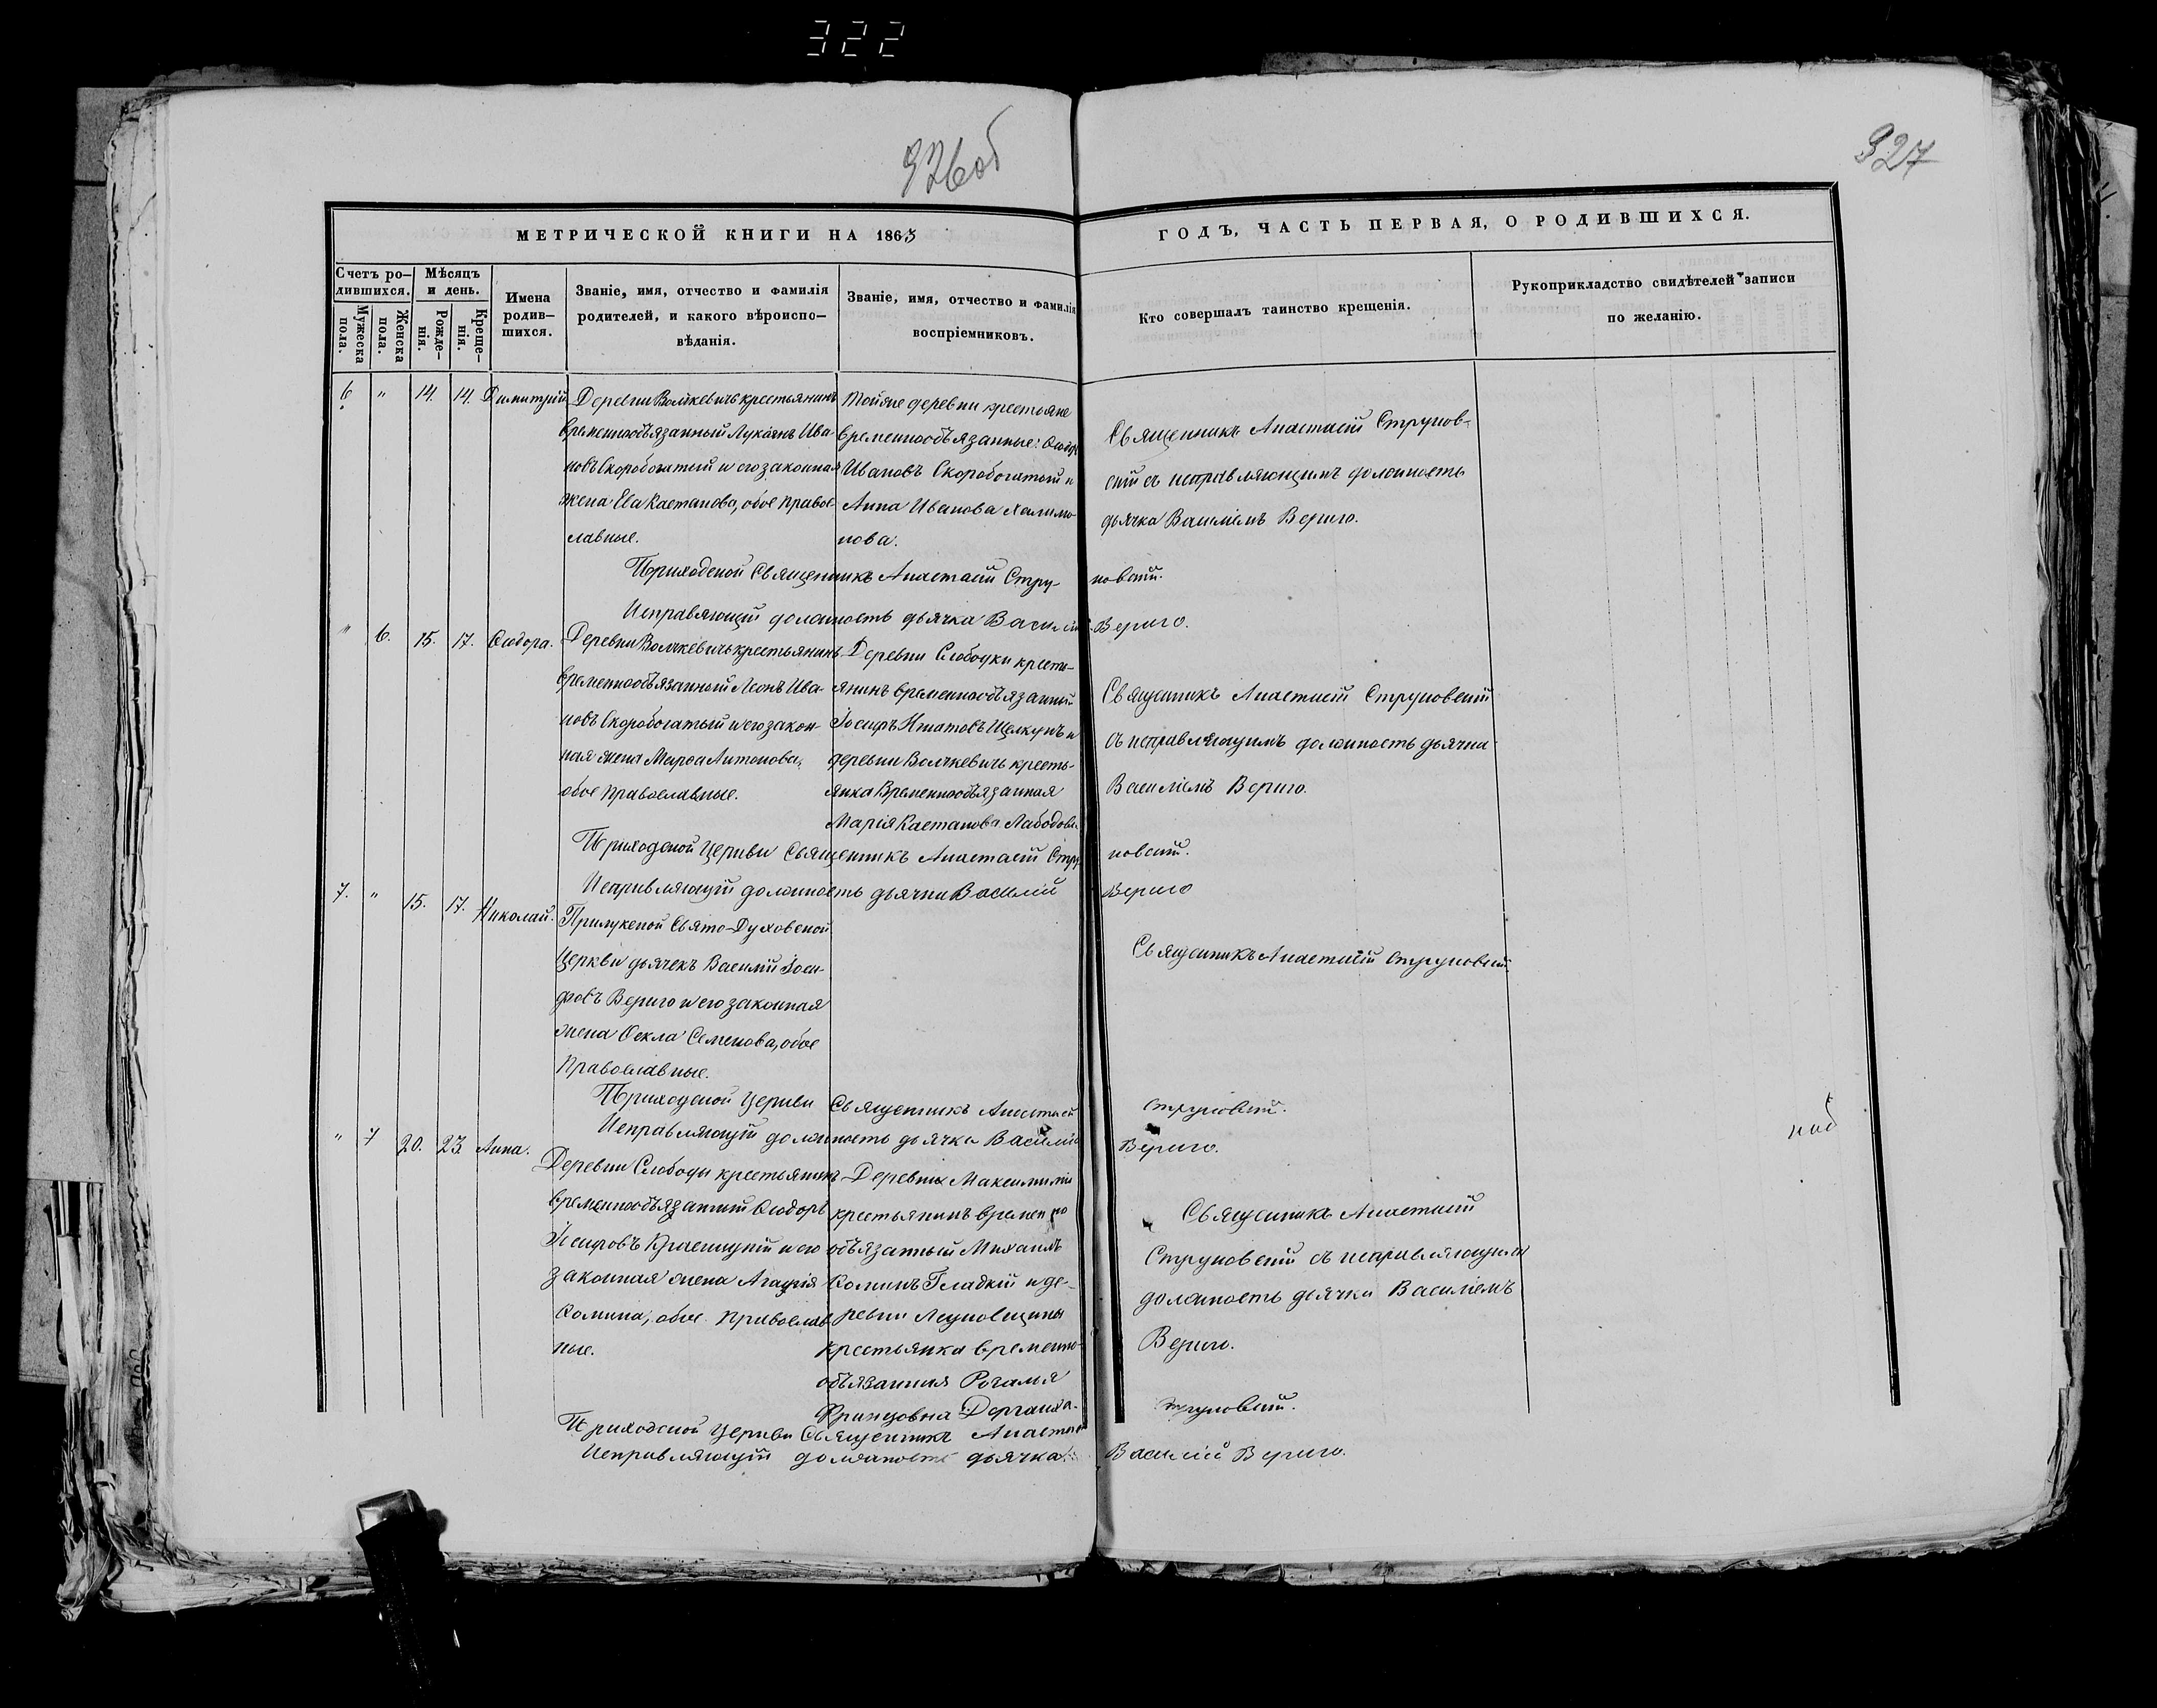 322
326об
327
МЕТРИЧЕСКОЙ КНИГИ НА 1863
ГОДЪ, ЧАСТЬ ПЕРВАЯ, О РОДИВШИХСЯ.
Счетъ ро-
дившихся.
Мужеска
пола.
Женска
пола.
Мѣсяцъ
и день.
Рожде-
нія.
Креще-
нія.
Имена
родив-
шихся.
Званіе, имя, отчество и фамилія
родителей, и какого вѣроиспо-
вѣданія.
Званіе, имя, отчество и фамилія
воспріемниковъ.
Кто совершалъ таинство крещенія.
Рукоприкладство свидѣтелей записи
по желанію.
6. " 14. 14. Димитрій
Деревни Волчкевичь крестьянинъ
временнообязанный Лукіянъ Ива-
новъ Скоробогатый и его законная
жена Ева Каетанова, обое право-
славные.
Тойже деревни крестьяне
временнообязанные: Ѳеодоръ
Ивановъ Скоробогатый и
Анна Иванова
нова.
Священникъ Анастасій Струков-
скій съ исправляющимъ должность
дьячка Василіемъ Вериго.
Приходской Священникъ Анастасій Стру-
ковскій.
Исправляющій должность дьячка Василій
Вериго.
" 6. 15. 17. Ѳеодора.
Деревни Волчкевичь крестьянинъ
временнообязанный Леонъ Ива-
новъ Скоробогатый и его закон-
ная жена Марѳа Антонова,
обое православные.
Деревни Слободки крестья-
янинъ временнообязанный
Іосифъ Игнатовъ Щелкунъ и
деревни Волчкевичь кресть-
янка временнообязанная
Марія Каетанова
Священникъ Анастасій Струковскій
съ исправляющимъ должность дьячка
Василіемъ Вериго.
Приходской Церкви Священникъ Анастасій Стру
ковскій.
Исправляющій должность дьячка Василій
Вериго
7. " 15. 17. Николай.
Прилукской Свято-Духовской
Церкви дьячекъ Василій Іоси-
фовъ Вериго и его законная
жена Ѳекла Семенова, обое
Православные.
Священникъ Анастасій Струковскій
Приходской Церкви Священникъ Анастасій
Струковскій.
Исправляющій должность дьячка Василій
Вериго.
" 7 20. 23. Анна.
Деревни Слободы крестьянинъ
временнообязанный Ѳеодоръ
Іосифовъ и его
законная жена Агафія
Ѳомина, обое Православ
ные.
Деревни
крестьянинъ временно
обязанный Михаилъ
Ѳоминъ Гладкій и де-
ревни
крестьянка временно-
обязанная
Священникъ Анастасій
Струковскій съ исправляющимъ
должность дьячка Василіемъ
Вериго.
Приходской Церкви Священникъ Анастасій
Струковскій.
Исправляющій должность дьячка
Василій Вериго.